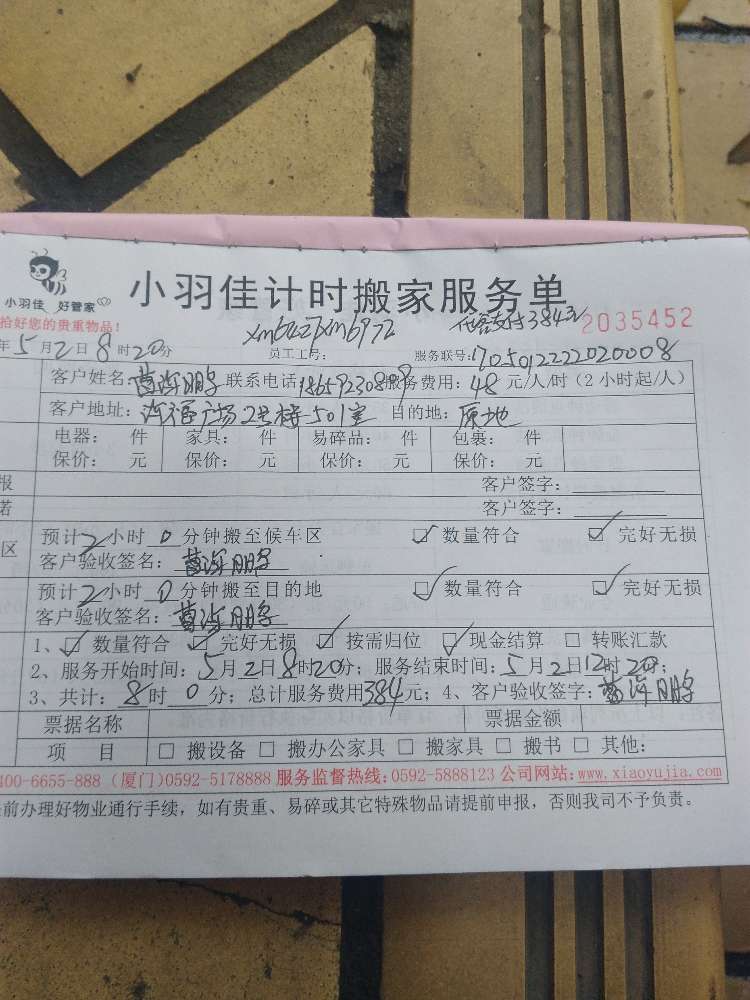 小羽佳 好管家
小羽佳计时搬家服务单
拾好您的贵重物品！
代客支付384元
2035452
年5月2日8时20分
xm6427xm6972
员工工号：
服务联号：1705012222020008
客户姓名： 海鹏 联系电话 服务费用：48元/人/时（2小时起/人）
客户地址： 广场2号楼501室 目的地：原地
电器： 件 家具： 件 易碎品： 件 包裹： 件
保价： 元 保价： 元 保价： 元 保价： 元
报 客户签字：
诺 客户签字：
预计2小时0分钟搬至候车区 ☑数量符合 ☑完好无损
区
客户验收签名： 海鹏
预计2小时0分钟搬至目的地 ☑数量符合 ☑完好无损
客户验收签名： 海鹏
1、☑数量符合 ☑完好无损 ☑按需归位 ☑现金结算 □转账汇款
2、服务开始时间：5月2日8时20分；服务结束时间：5月2日12时20；
3、共计：8时0分；总计服务费用384元；4、客户验收签字： 海鹏
票据名称 票据金额
项 目 □搬设备 □搬办公家具 □搬家具 □搬书 □其他：
400-6655-888（厦门）0592-5178888 服务监督热线：0592-5888123 公司网站：www.xiaoyujia.com
前办理好物业通行手续，如有贵重、易碎或其它特殊物品请提前申报，否则我司不予负责。